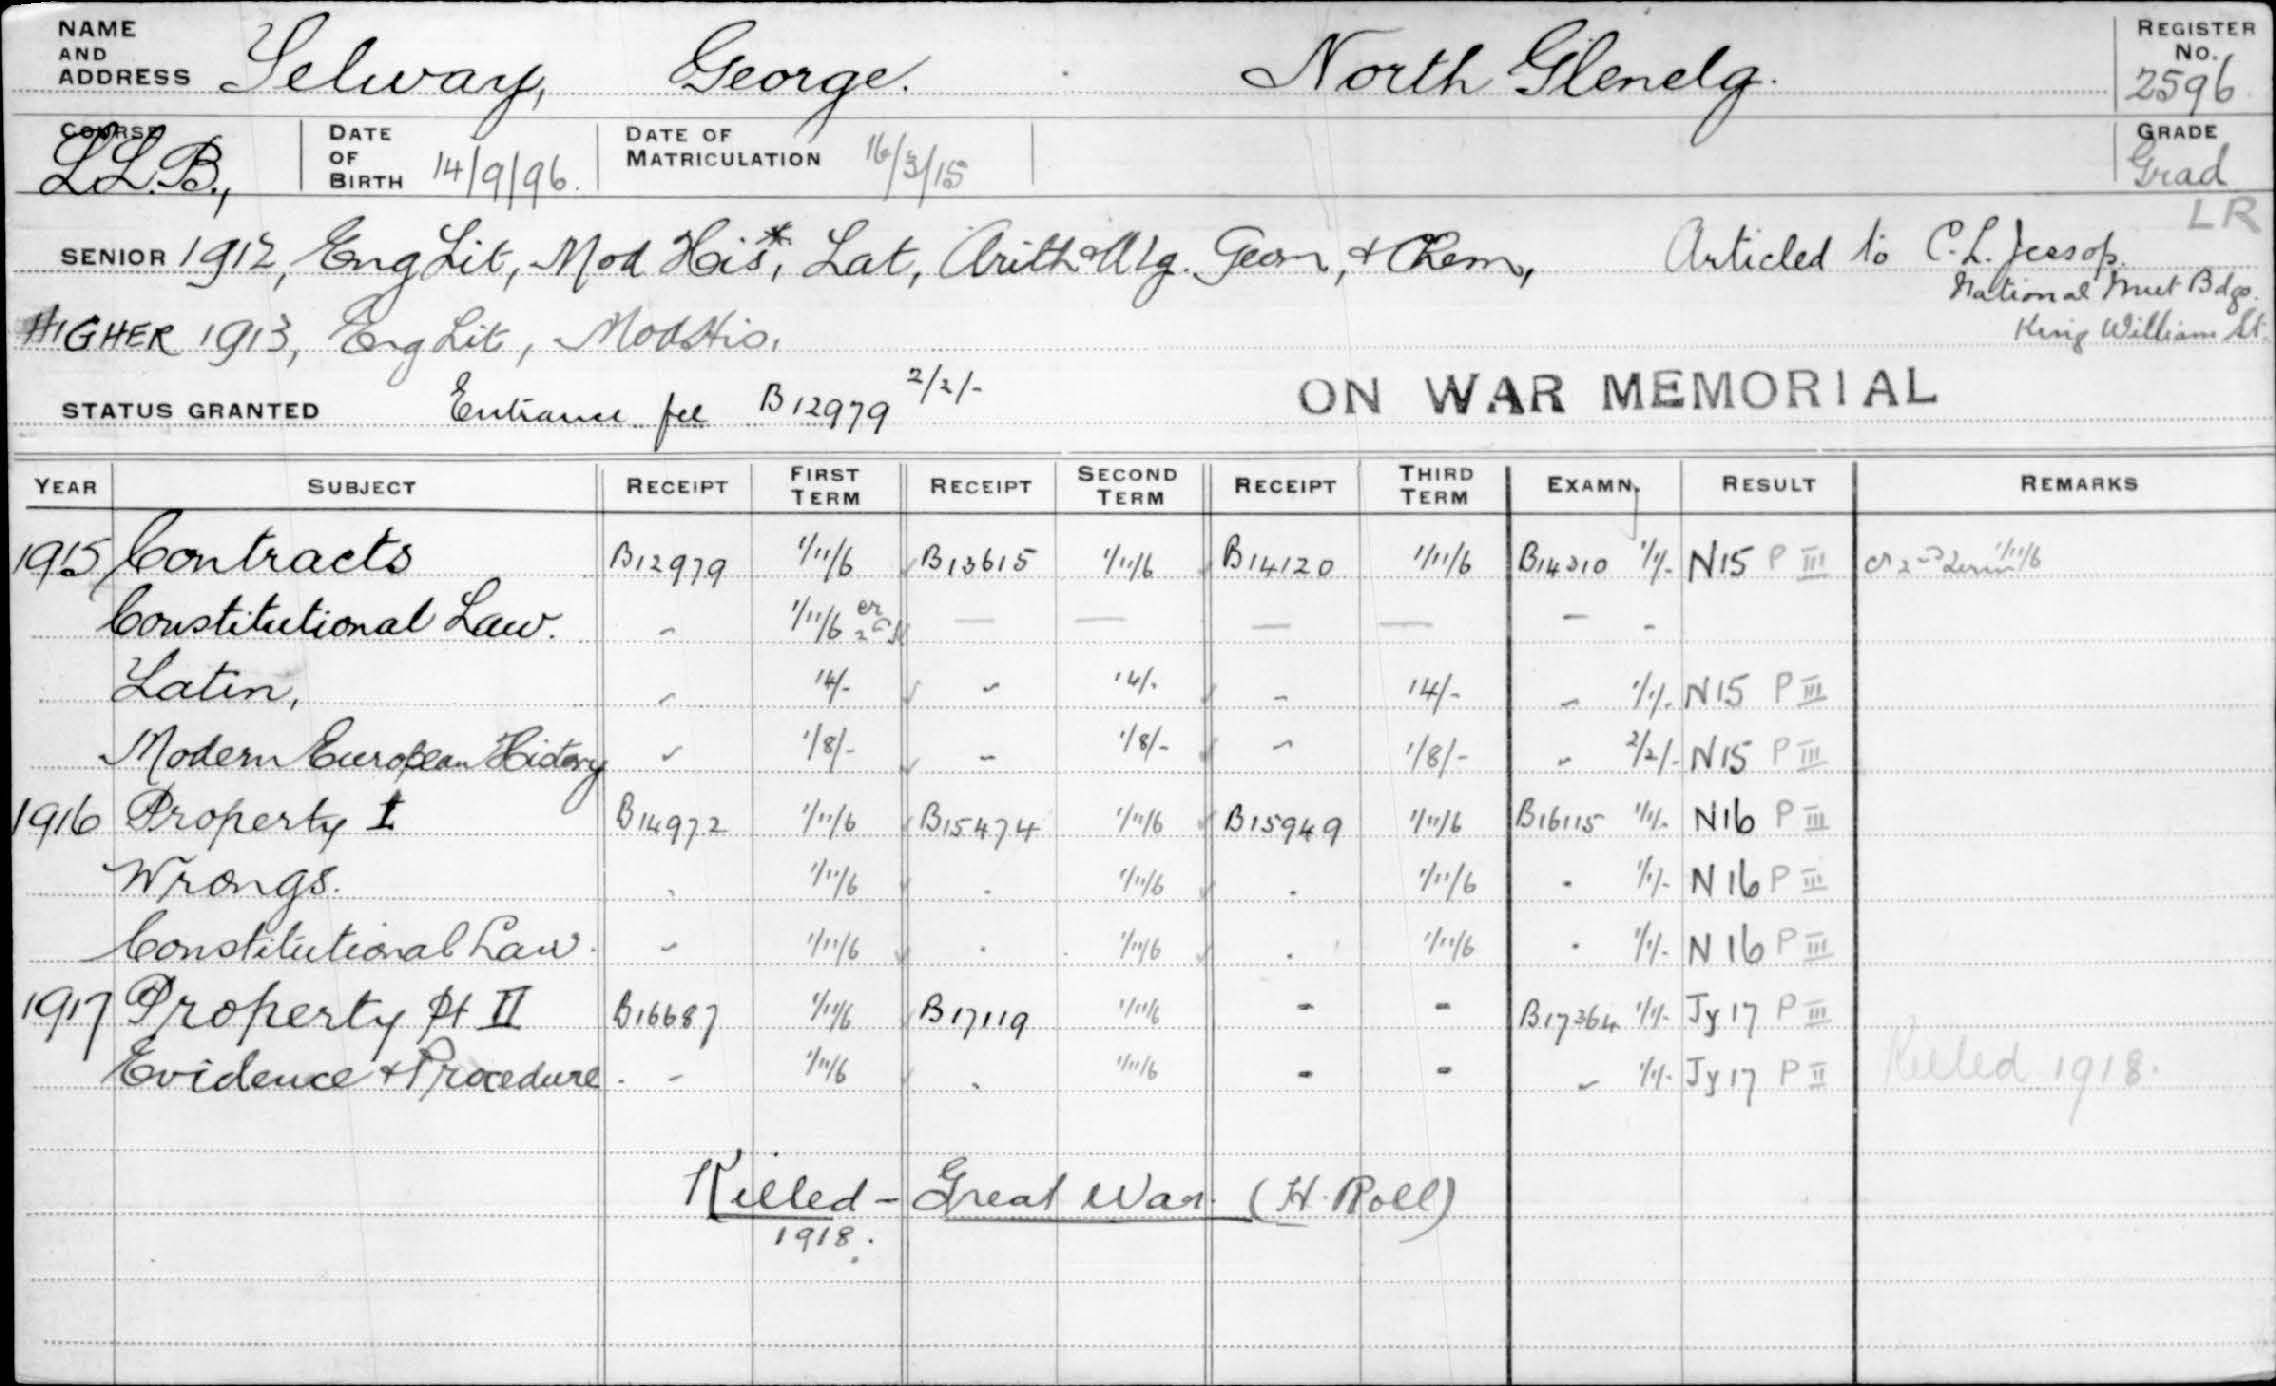 NAME AND ADDRESS Selway, George. North Glenelg. REGISTER NO. 2596
COURSE LL.B., DATE OF BIRTH 14/9/96. DATE OF MATRICULATION 16/3/15 GRADE Grad
LR
SENIOR 1912, Eng Lit, Mod His*, Lat, Arith & Alg. Geom, & Chem, Articled to C. L. Jessop.
National Mut Bdgs.
HIGHER 1913, Eng Lit, Mod His. King William St.
STATUS GRANTED Entrance fee B12979 2/2/- ON WAR MEMORIAL
YEAR SUBJECT RECEIPT FIRST TERM RECEIPT SECOND TERM RECEIPT THIRD TERM EXAMN. RESULT REMARKS
1915 Contracts B12979 1/11/6 B13615 1/11/6 B14120 1/11/6 B14310 1/1/- N15 P III cr 2nd Term 1/11/6
Constitutional Law. " 1/11/6 cr — — — — - -
Latin, " 14/- " 14/- " 14/- " 1/1/- N15 P III
Modern European History " 1/8/- " 1/8/- " 1/8/- " 2/2/- N15 P III
1916 Property I B14972 1/11/6 B15474 1/11/6 B15949 1/11/6 B16115 1/1/- N16 P III
Wrongs. " 1/11/6 " 1/11/6 " 1/11/6 " 1/1/- N16 P III
Constitutional Law. " 1/11/6 " 1/11/6 " 1/11/6 " 1/1/- N16 P III
1917 Property Pt II B16687 1/11/6 B17119 1/11/6 - - B17264 1/1/- Jy 17 P III
Evidence & Procedure. " 1/11/6 " 1/11/6 - - " 1/1/- Jy 17 P II Killed 1918.
Killed - Great War. (H. Roll)
1918.